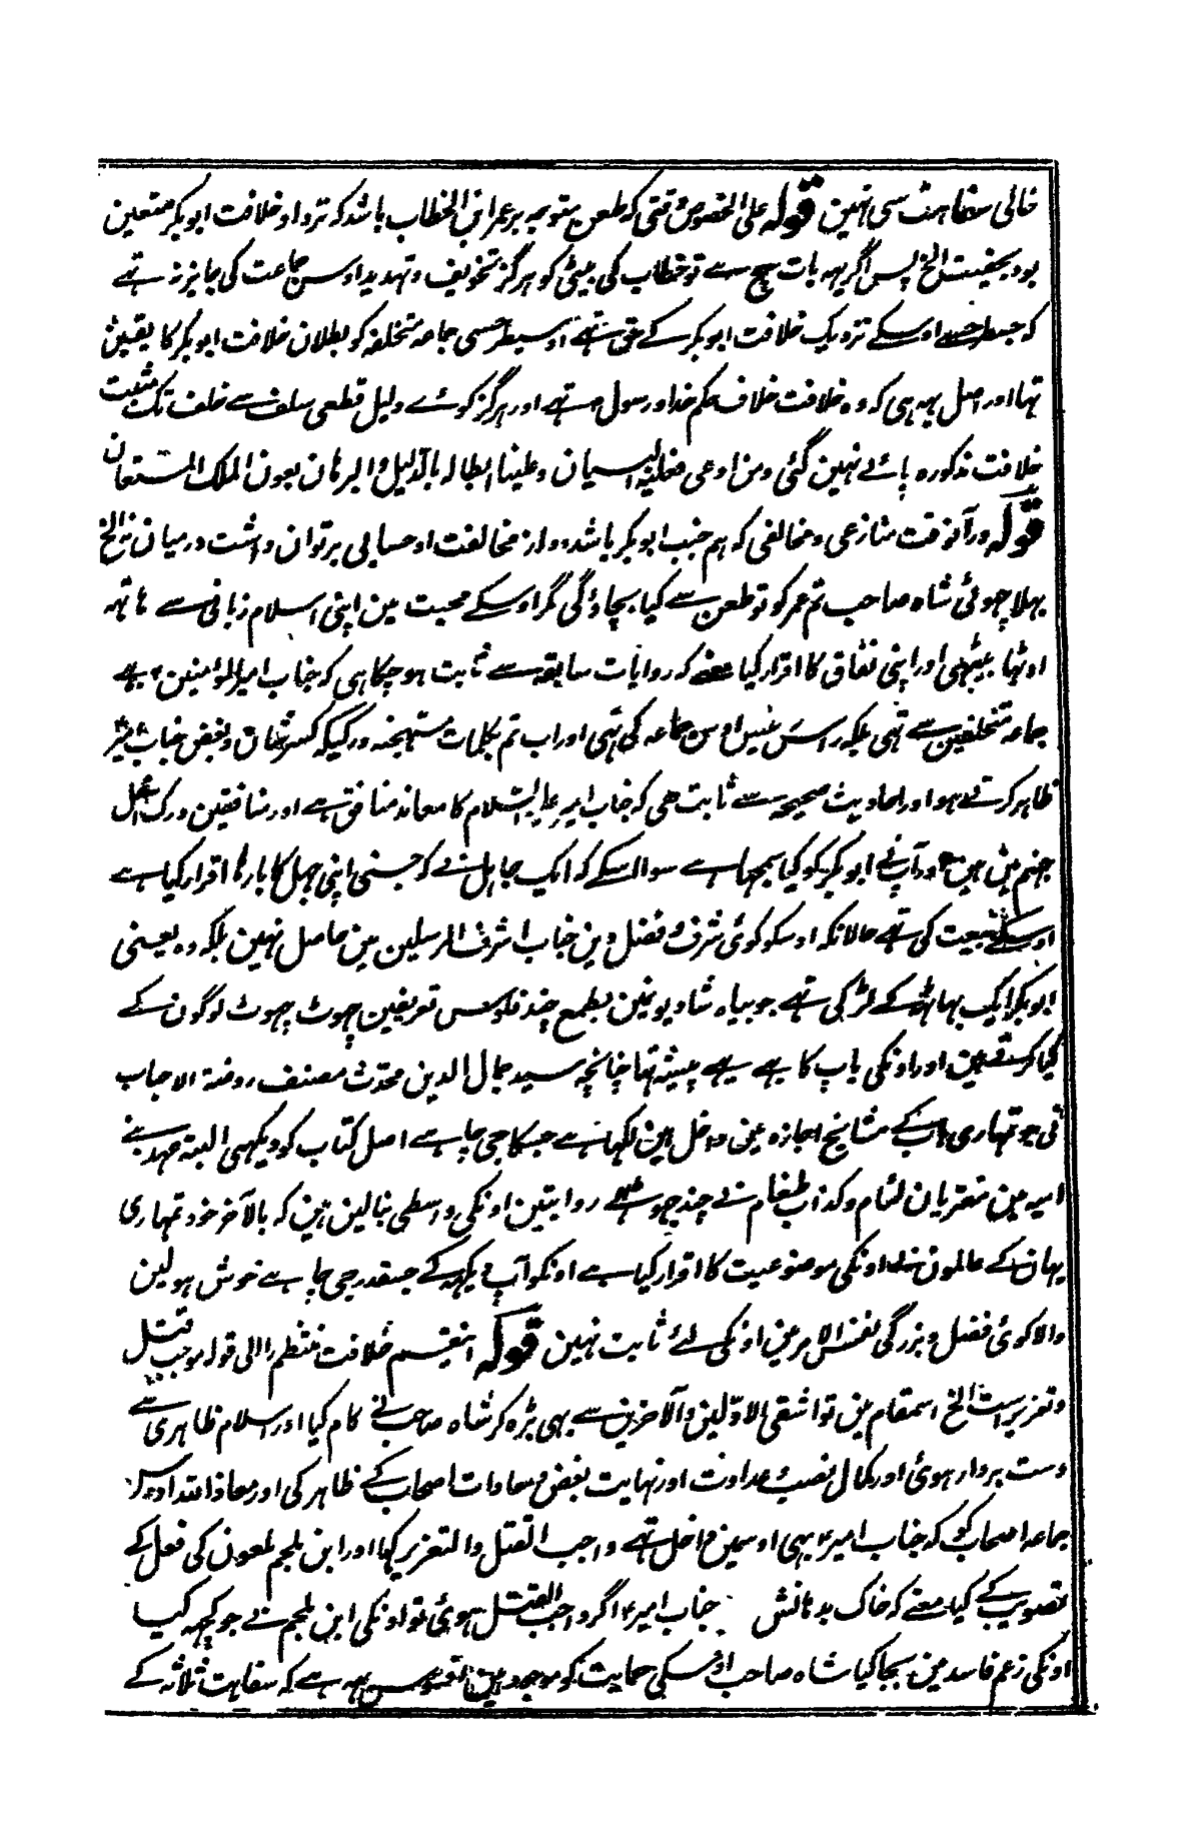 خالی سفاہت سی نہین قولہ علی الخصوص وقتی کہ طعن متوجہ بر عمر ابن الخطاب باشد کہ نزد او خلافت ابو بکر متعین
بود بحقیت الخ پس اگر یہہ بات سچ ہے تو خطاب کی بیٹی کو ہرگز تخویف و تہدید اوس جماعت کی جایز نہ تہے
کہ جسطرحسے اوسکے نزدیک خلافت ابو بکر کے حق تہے اوسیطرحسی جماعہ متخلفہ کو بطلان خلافت ابو بکر کا یقین
تہا اور اصل یہہ ہی کہ وہ خلافت خلاف حکم خدا و رسول تہے اور ہرگز کوئے دلیل قطعی سلف سے خلف تک مثبت
خلافت مذکورہ پائے نہین گئی و من ادعی فعلیہ البیان و علینا ابطالہ بالدلیل و البرہان بعون الملک المستعان
قولہ درآنوقت منازعی و مخالفی کہ ہم جنب ابو بکر باشد و از مخالفت او حسابی بر توان داشت درمیان نہ الخ
بہلا چوئی شاہ صاحب تم عمر کو تو طعن سے کیا بچاؤگی مگر اوسکے محبت مین اپنی اسلام زبانی سے ہاتہہ
اوٹہا بیٹہی اور اپنی نفاق کا اقرار کیا یعنے کہ روایات سابقہ سے ثابت ہوچکا ہی کہ جناب امیر المؤمنین ؑ بہے
جماعہ متخلفین سے تہی بلکہ راس رئیس اوس جماعہ کی تہی اور اب تم بکلمات مستہجنہ و رکیکہ کسر شان و بغض جناب امیر
ظاہر کرتے ہو اور احادیث صحیحہ سے ثابت ہی کہ جناب امیر علیہ السلام کا معاند منافق ہے اور منافقین درک اسفل
جہنم مین ہین اور آپنے ابو بکر کو کیا سمجہا ہے سوا اسکے کہ ایک جاہل نے کہ جسنی اپنی جہل کا بارہا اقرار کیا ہے
اوسکے بیعت کی تہے حالانکہ اوسکو کوئی شرف و فضل دین جناب اشرف المرسلین مین حاصل نہین بلکہ وہ یعنی
ابو بکر ایک بہاٹ کے لڑکی تہے جو بیاہ شادیونمین بطمع چند فلوس تعریفین جہوٹ جہوٹ لوگون کے
کیا کرتے ہین اور اونکی باپ کا بہے یہے پیشہ تہا چنانچہ سید جمال الدین محدث مصنف روضۃ الاحباب
نی جو تمہاری باپ کے مشایخ اجازہ مین داخل ہین لکہا ہے جسکا جی چاہے اصل کتاب کو دیکہی البتہ عہد بنے
امیہ مین مفتریان لئام و کذاب طغام نے چند جہوٹے روایتین اونکی واسطی بنالین ہین کہ بالآخر خود تمہاری
یہان کے عالمون نے اونکی موضوعیت کا اقرار کیا ہے اونکو آپ دیکہہ کے جسقدر جی چاہے خوش ہولین
والا کوئی فضل و بزرگی نفس الامر مین اونکی لئے ثابت نہین قولہ اینقسم خلافت منتظم را الی قولہ موجب قتل
و تعزیر است الخ اسمقام مین تو اشقی الاولین و الآخرین سے بہی بڑہ کر شاہ صاحب نے کام کیا اور اسلام ظاہری سے
دست بردار ہوئی اور کمال نصب و عداوت اور نہایت بغض و معادات اصحاب کے ظاہر کی اور معاذ اللہ اوس
جماعہ اصحاب کو کہ جناب امیر ؑ بہی اوسمین داخل تہے واجب القتل و التعزیر کہا اور ابن ملجم ملعون کی فعل کے
تصویب کے کیا معنے کہ خاک بدہانش جناب امیر ؑ اگر واجب القتل ہوئی تو اونکی ابن ملجم نے جو کچہہ کیا
اونکی زعم فاسد مین بجا کیا شاہ صاحب اوسکی حمایت کو موجود ہین افسوس یہہ ہے کہ سفاہت ثلاثہ کے